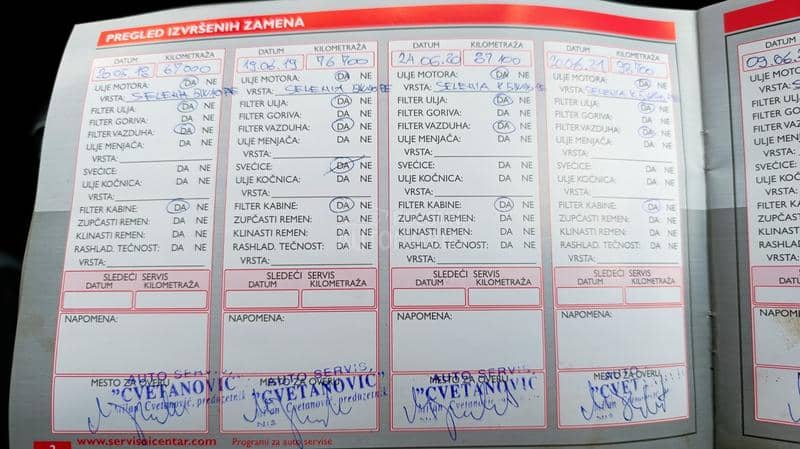 PREGLED IZVRŠENIH ZAMENA
DATUM KILOMETRAŽA
67000
ULJE MOTORA: DA NE
VRSTA: SELENIA 5KW40PE
FILTER ULJA: DA NE
FILTER GORIVA: DA NE
FILTER VAZDUHA: DA NE
ULJE MENJAČA: DA NE
VRSTA:
SVEĆICE: DA NE
ULJE KOČNICA: DA NE
VRSTA:
FILTER KABINE: DA NE
ZUPČASTI REMEN: DA NE
KLINASTI REMEN: DA NE
RASHLAD. TEČNOST: DA NE
VRSTA:
SLEDEĆI SERVIS
DATUM KILOMETRAŽA
NAPOMENA:
MESTO ZA OVERU
AUTO SERVIS
"CVETANOVIĆ"
Milan Cvetanović, preduzetnik
DATUM KILOMETRAŽA
19.06.19 76700
ULJE MOTORA: DA NE
VRSTA: SELENIA
FILTER ULJA: DA NE
FILTER GORIVA: DA NE
FILTER VAZDUHA: DA NE
ULJE MENJAČA: DA NE
VRSTA:
SVEĆICE: DA NE
ULJE KOČNICA: DA NE
VRSTA:
FILTER KABINE: DA NE
ZUPČASTI REMEN: DA NE
KLINASTI REMEN: DA NE
RASHLAD. TEČNOST: DA NE
VRSTA:
SLEDEĆI SERVIS
DATUM KILOMETRAŽA
NAPOMENA:
MESTO ZA OVERU
AUTO SERVIS,
"CVETANOVIĆ"
Milan Cvetanović, preduzetnik
NIŠ
DATUM KILOMETRAŽA
24.06.20 87100
ULJE MOTORA: DA NE
VRSTA: SELENIA K
FILTER ULJA: DA NE
FILTER GORIVA: DA NE
FILTER VAZDUHA: DA NE
ULJE MENJAČA: DA NE
VRSTA:
SVEĆICE: DA NE
ULJE KOČNICA: DA NE
VRSTA:
FILTER KABINE: DA NE
ZUPČASTI REMEN: DA NE
KLINASTI REMEN: DA NE
RASHLAD. TEČNOST: DA NE
VRSTA:
SLEDEĆI SERVIS
DATUM KILOMETRAŽA
NAPOMENA:
MESTO ZA OVERU
AUTO SERVIS,
"CVETANOVIĆ"
NIŠ
DATUM KILOMETRAŽA
20.06.21
ULJE MOTORA: DA NE
VRSTA: SELENIA K
FILTER ULJA: DA NE
FILTER GORIVA: DA NE
FILTER VAZDUHA: DA NE
ULJE MENJAČA: DA NE
VRSTA:
SVEĆICE: DA NE
ULJE KOČNICA: DA NE
VRSTA:
FILTER KABINE: DA NE
ZUPČASTI REMEN: DA NE
KLINASTI REMEN: DA NE
RASHLAD. TEČNOST: DA NE
VRSTA:
SLEDEĆI SERVIS
DATUM KILOMETRAŽA
NAPOMENA:
MESTO ZA OVERU
DATUM
09.06.
ULJE MOTORA:
VRSTA:
FILTER ULJA:
FILTER GORIVA:
FILTER VAZDUHA:
ULJE MENJAČA:
VRSTA:
SVEĆICE:
ULJE KOČNICA:
VRSTA:
FILTER KABINE:
ZUPČASTI REMEN:
KLINASTI REMEN:
RASHLAD. TEČNOST:
VRSTA:
NAPOMENA:
2 www.servisnicentar.com Programi za auto servise